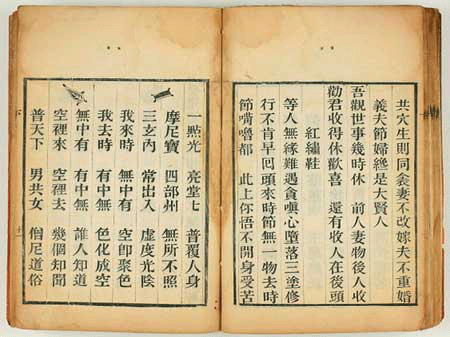 共穴生則同衾妻不改嫁夫不重婚
義夫節婦緫是大賢人
吾觀世事幾時休　前人妻物後人收
勸君收得休歡喜　還有收人在後頭
紅繡鞋
等人無緣難遇貪嗔心墮落三塗修
行不肯早回頭來時節無一物去時
節嘴嚕都　此上你悟不開身受苦
一點光　亮堂七　普覆人身
摩尼寶　四部州　無所不照
三玄內　常出入　虛度光陰
我來時　無中有　空卽聚色
我去時　有中無　色化成空
無中有　有中無　誰人知道
空裡來　空裡去　幾個知聞
普天下　男共女　僧尼道俗